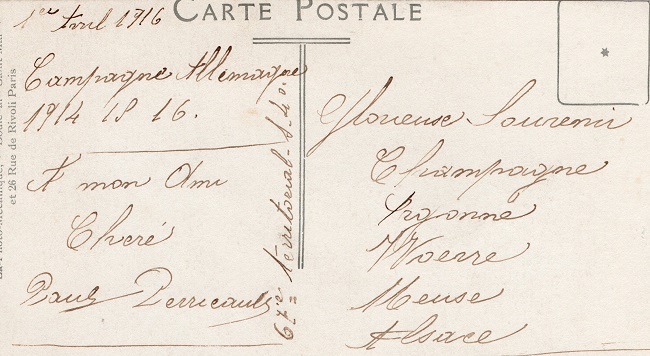 CARTE POSTALE
1er Avril 1916
Campagne Allemagne
1914 15 16.
A mon Ami
Cheré
Paul Perricault
67me Territorial
Glorieuse Souvenir
Champagne
Argonne
Woerre
Meuse
Alsace
et 26 Rue de Rivoli Paris